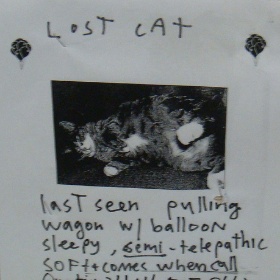 LOST CAT
last seen pulling
wagon w/ balloon
sleepy, semi-telepathic
soft + comes when call